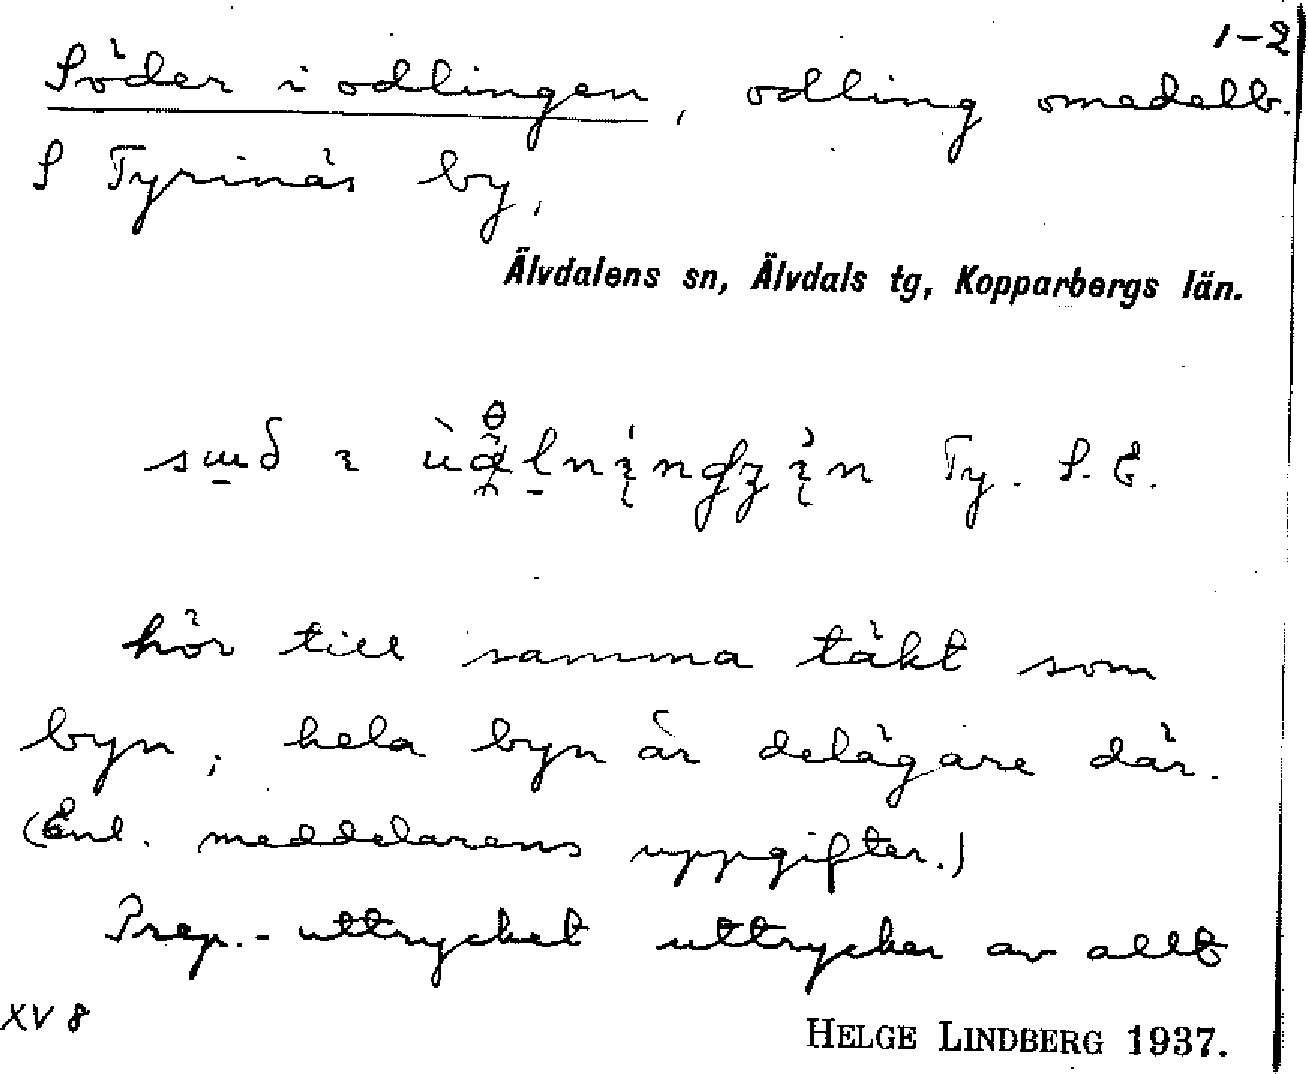 1-2
Söder i odlingen, odling omedelb.
S Tyrinäs by,
Älvdalens sn, Älvdals tg, Kopparbergs län.
Ty. S. E.
hör till samma täkt som
byn, hela byn är delägare där.
(Enl. meddelarens uppgifter.)
Prep.-uttrycket uttrycker av allt
XV 8
HELGE LINDBERG 1937.